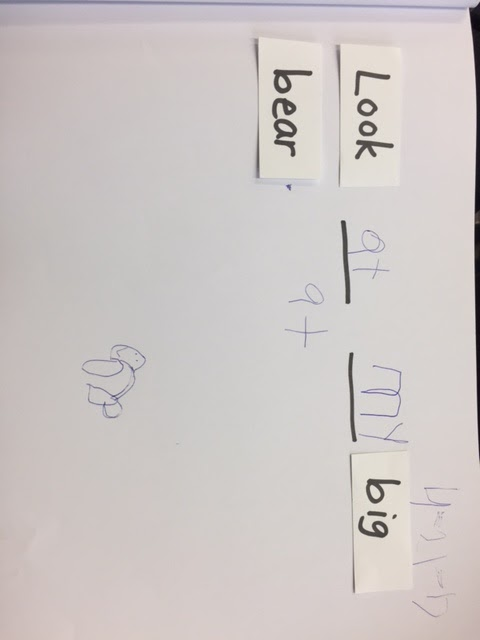 Look at my big
bear.
at